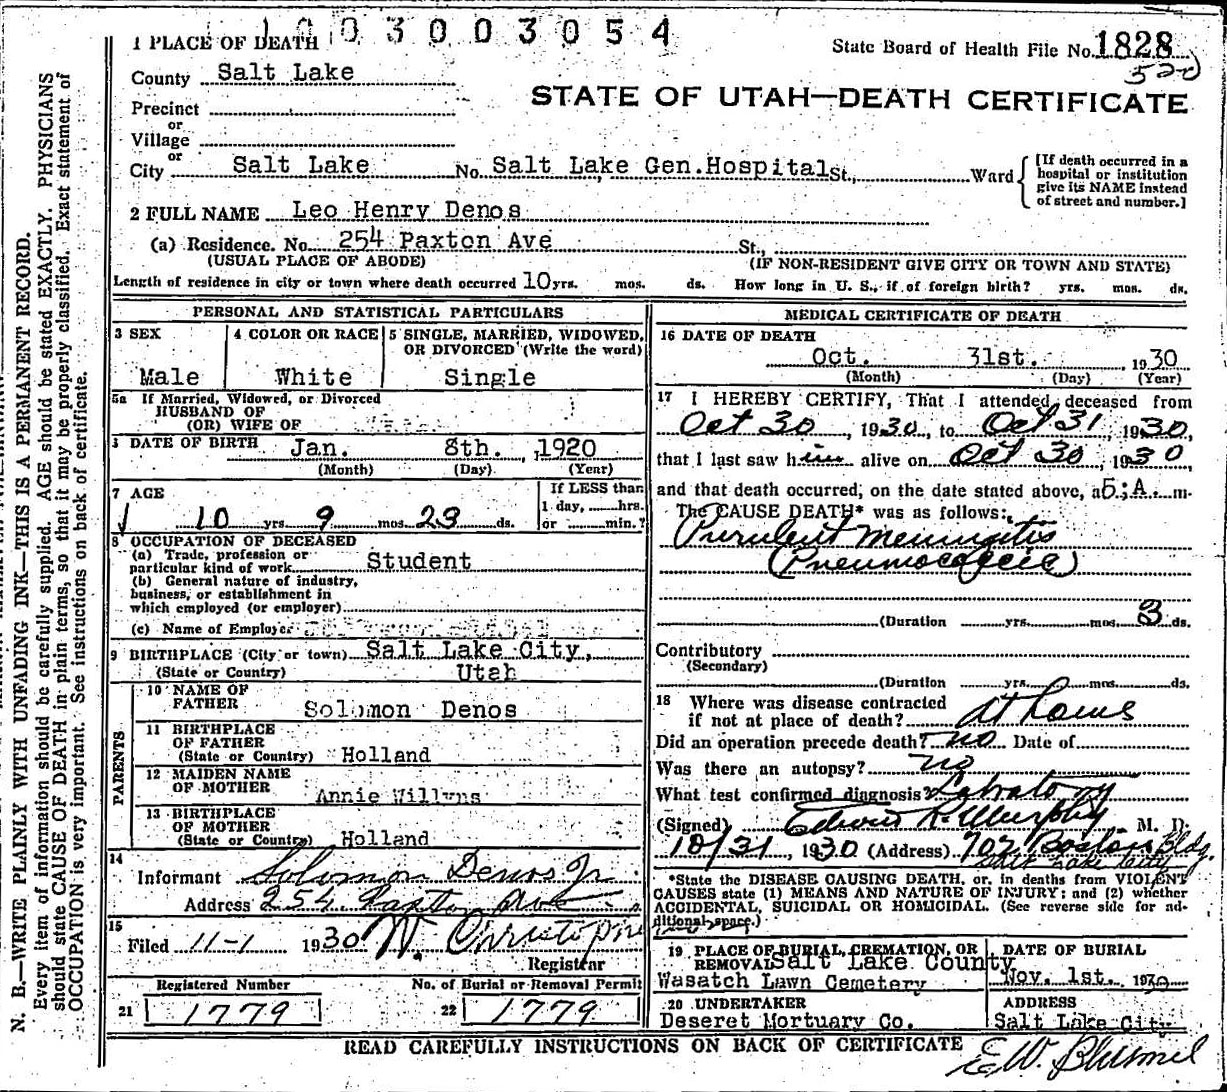 1003003054
State Board of Health File No. 1828
520
1 PLACE OF DEATH
County Salt Lake
STATE OF UTAH—DEATH CERTIFICATE
Precinct
or
Village
or
City Salt Lake No. Salt Lake Gen.Hospital St., Ward
[If death occurred in a
hospital or institution
give its NAME instead
of street and number.]
2 FULL NAME Leo Henry Denos
(a) Residence. No. 254 Paxton Ave St.,
(USUAL PLACE OF ABODE) (IF NON-RESIDENT GIVE CITY OR TOWN AND STATE)
Length of residence in city or town where death occurred 10 yrs. mos. ds. How long in U. S., if of foreign birth? yrs. mos. ds.
PERSONAL AND STATISTICAL PARTICULARS
3 SEX
Male
4 COLOR OR RACE
White
5 SINGLE, MARRIED, WIDOWED,
OR DIVORCED (Write the word)
Single
5a If Married, Widowed, or Divorced
HUSBAND OF
(OR) WIFE OF
DATE OF BIRTH Jan. 8th. 1920
(Month) (Day) (Year)
7 AGE
10 yrs. 9 mos. 23 ds.
If LESS than
1 day, hrs.
or min.?
8 OCCUPATION OF DECEASED
(a) Trade, profession or
particular kind of work Student
(b) General nature of industry,
business, or establishment in
which employed (or employer)
(c) Name of Employer
9 BIRTHPLACE (City or town) Salt Lake City,
(State or Country) Utah
PARENTS
10 NAME OF
FATHER Solomon Denos
11 BIRTHPLACE
OF FATHER
(State or Country) Holland
12 MAIDEN NAME
OF MOTHER Annie Willyns
13 BIRTHPLACE
OF MOTHER
(State or Country) Holland
14
Informant Solomon Denos Jr
Address 254 Paxton Ave
15
Filed 11-1 1930 W. Christopher
Registrar
Registered Number
21 1779
No. of Burial or Removal Permit
22 1779
MEDICAL CERTIFICATE OF DEATH
16 DATE OF DEATH
Oct. 31st. 1930
(Month) (Day) (Year)
17 I HEREBY CERTIFY, That I attended deceased from
Oct 30, 1930, to Oct 31, 1930,
that I last saw him alive on Oct 30, 1930
and that death occurred, on the date stated above, a 5:A. m.
The CAUSE DEATH* was as follows:
Purulent Meningitis
(Pneumococcic)
(Duration yrs. mos. 3 ds.
Contributory
(Secondary)
(Duration yrs. mos. ds.
18 Where was disease contracted
if not at place of death? at home
Did an operation precede death? no Date of
Was there an autopsy? no
What test confirmed diagnosis? Labratory
(Signed) Edwin R. Murphy M. D.
10/31, 1930 (Address) 702 Boston Bldg.
Salt Lake City
*State the DISEASE CAUSING DEATH, or, in deaths from VIOLENT
CAUSES state (1) MEANS AND NATURE OF INJURY; and (2) whether
ACCIDENTAL, SUICIDAL OR HOMICIDAL. (See reverse side for ad-
ditional space.)
19 PLACE OF BURIAL, CREMATION, OR
REMOVAL Salt Lake County
Wasatch Lawn Cemetery
DATE OF BURIAL
Nov. 1st. 1930
20 UNDERTAKER
Deseret Mortuary Co.
ADDRESS
Salt Lake City
READ CAREFULLY INSTRUCTIONS ON BACK OF CERTIFICATE
N. B.—WRITE PLAINLY WITH UNFADING INK—THIS IS A PERMANENT RECORD.
Every item of information should be carefully supplied. AGE should be stated EXACTLY. PHYSICIANS
should state CAUSE OF DEATH in plain terms, so that it may be properly classified. Exact statement of
OCCUPATION is very important. See instructions on back of certificate.